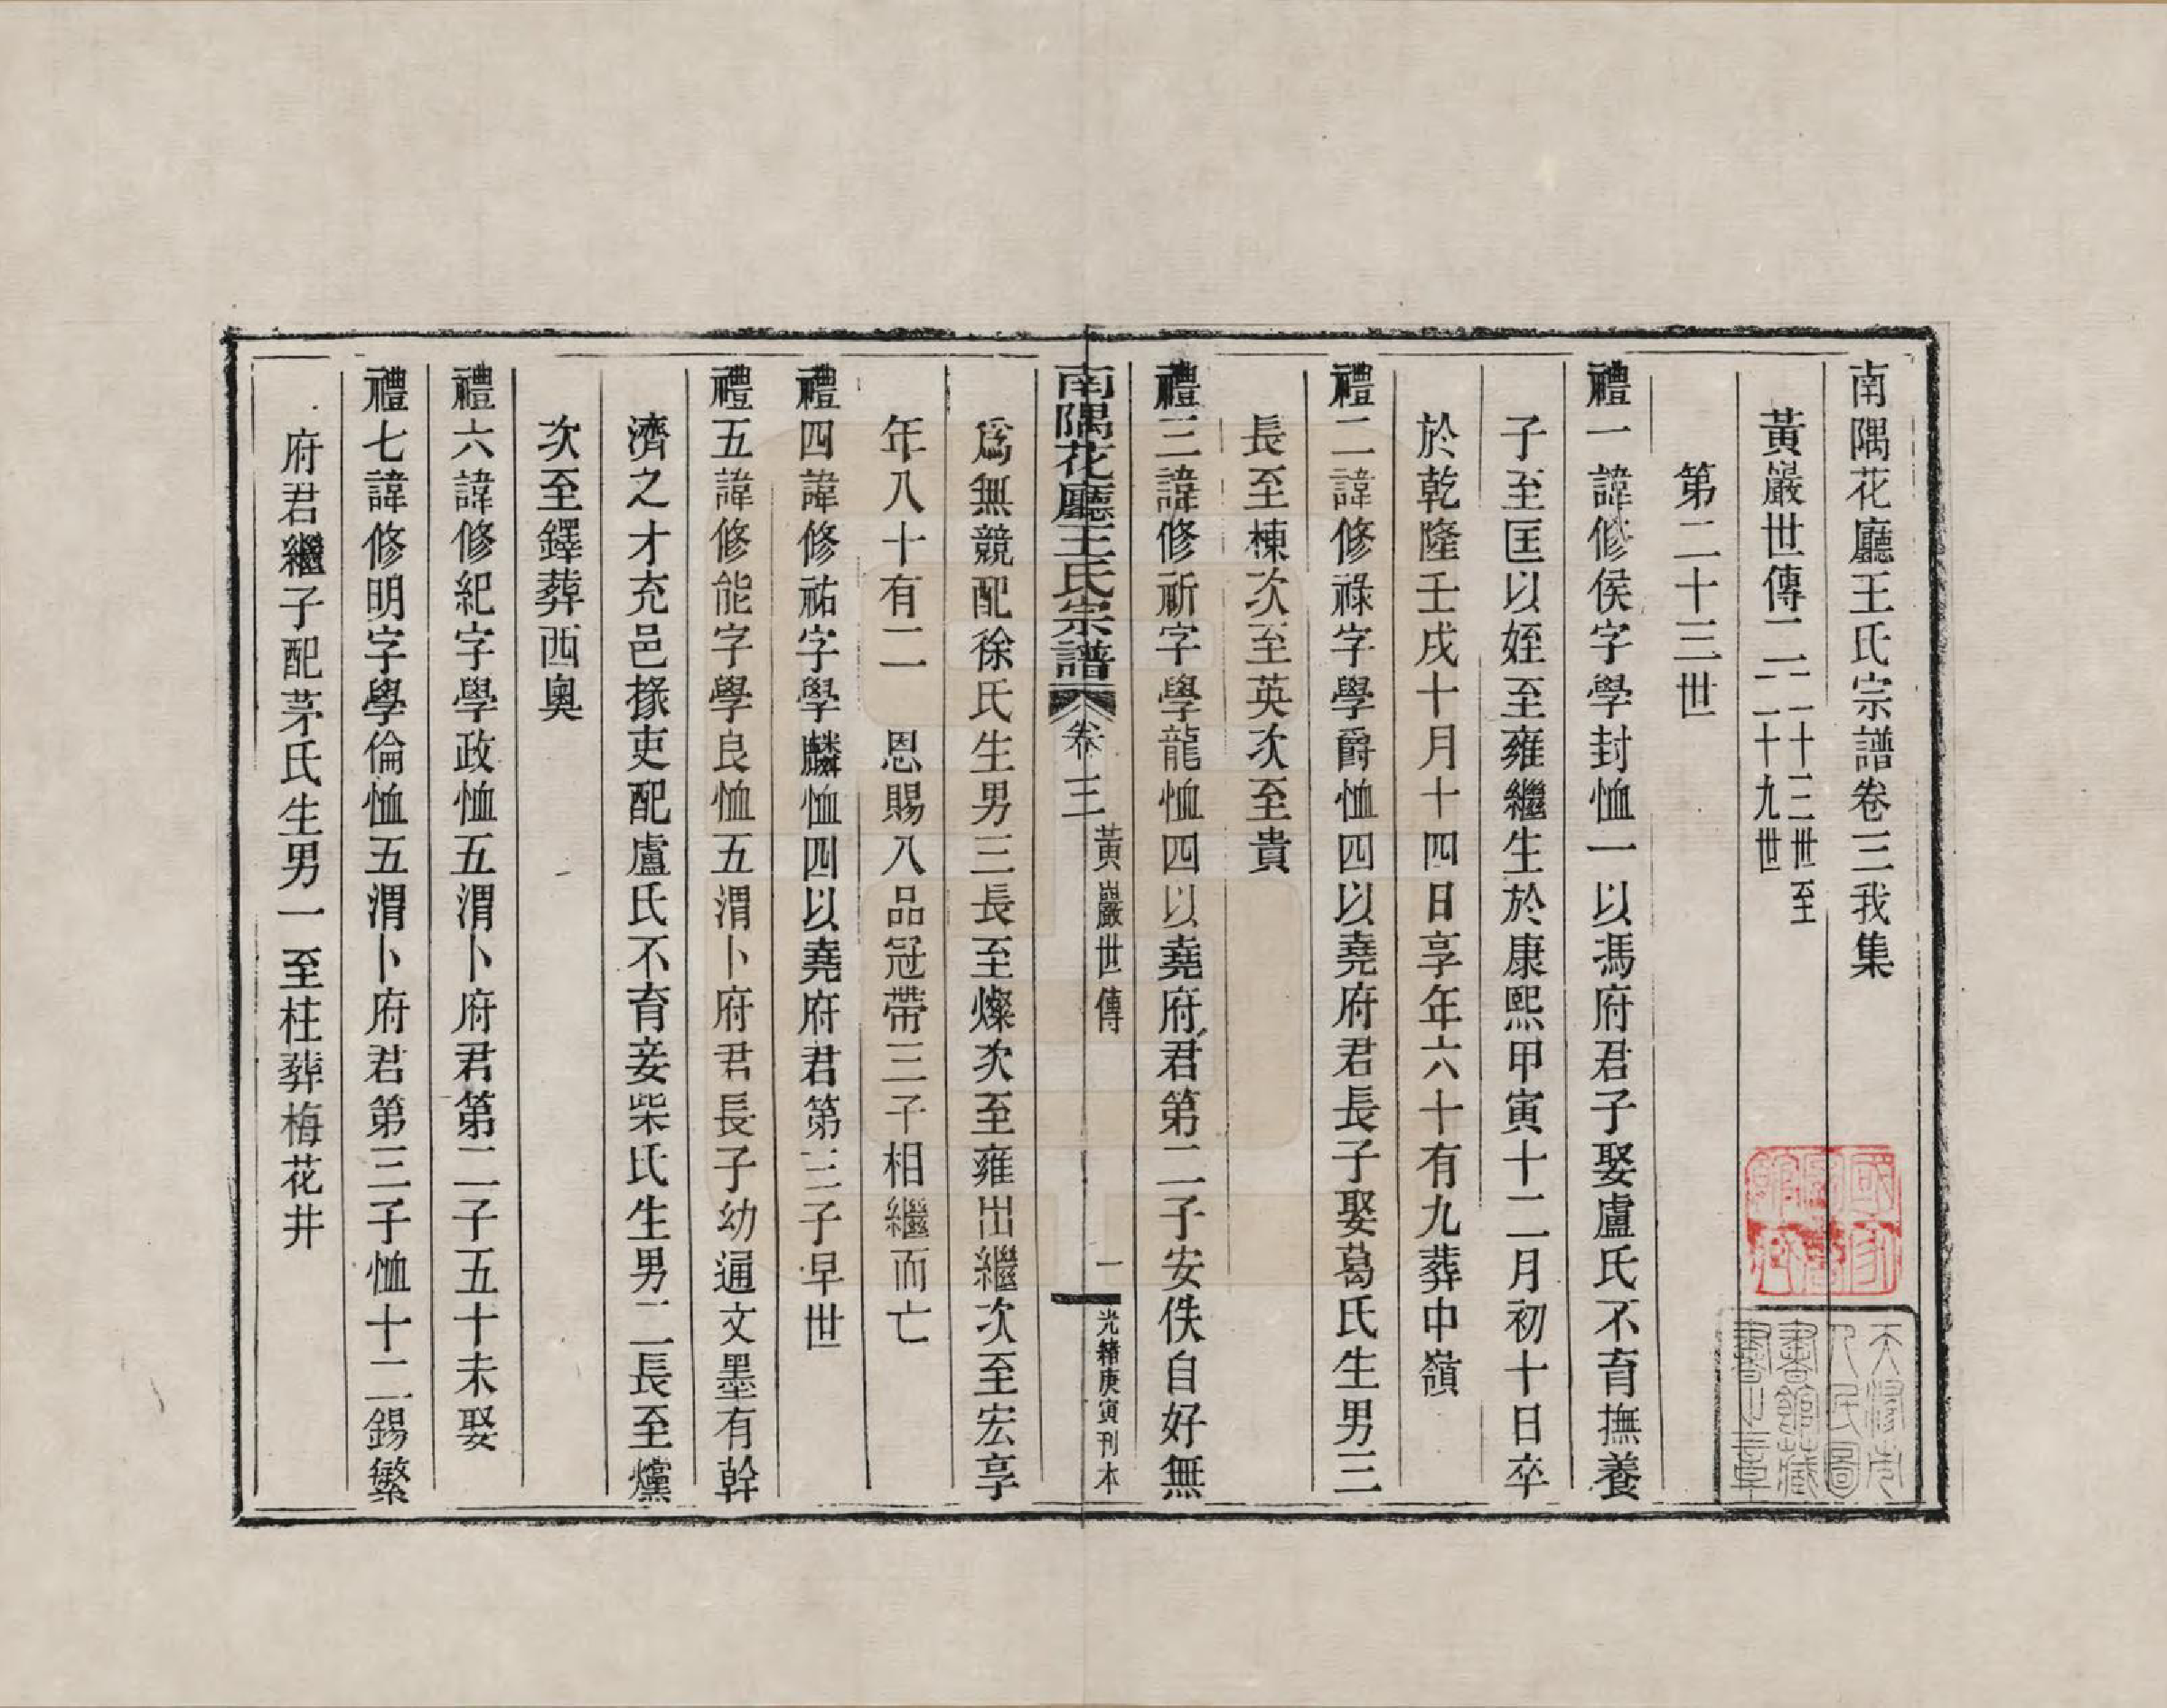 南隅花廳王氏宗譜卷三我集
黃巖世傳二二十三世至二十九世
第二十三世
禮一諱修侯字學封恤一以馮府君子娶盧氏不育撫養
子至匡以姪至雍繼生於康熙甲寅十二月初十日卒
於乾隆壬戌十月十四日享年六十有九葬中嶺
禮二諱修祿字學爵恤四以堯府君長子娶葛氏生男三
長至棟次至英次至貴
禮三諱修祈字學龍恤四以堯府君第二子安佚自好無
南隅花廳王氏宗譜 卷三 黃巖世傳 一 光緒庚寅刊本
爲無競配徐氏生男三長至燦次至雍出繼次至宏享
年八十有二 恩賜八品冠帶三子相繼而亡
禮四諱修祐字學麟恤四以堯府君第三子早世
禮五諱修能字學良恤五渭卜府君長子幼通文墨有幹
濟之才充邑掾吏配盧氏不育妾柴氏生男二長至爣
次至鐸葬西奧
禮六諱修紀字學政恤五渭卜府君第二子五十未娶
禮七諱修明字學倫恤五渭卜府君第三子恤十二錫繁
府君繼子配茅氏生男一至柱葬梅花井
國家圖書館藏
天津市人民圖書館藏書之章